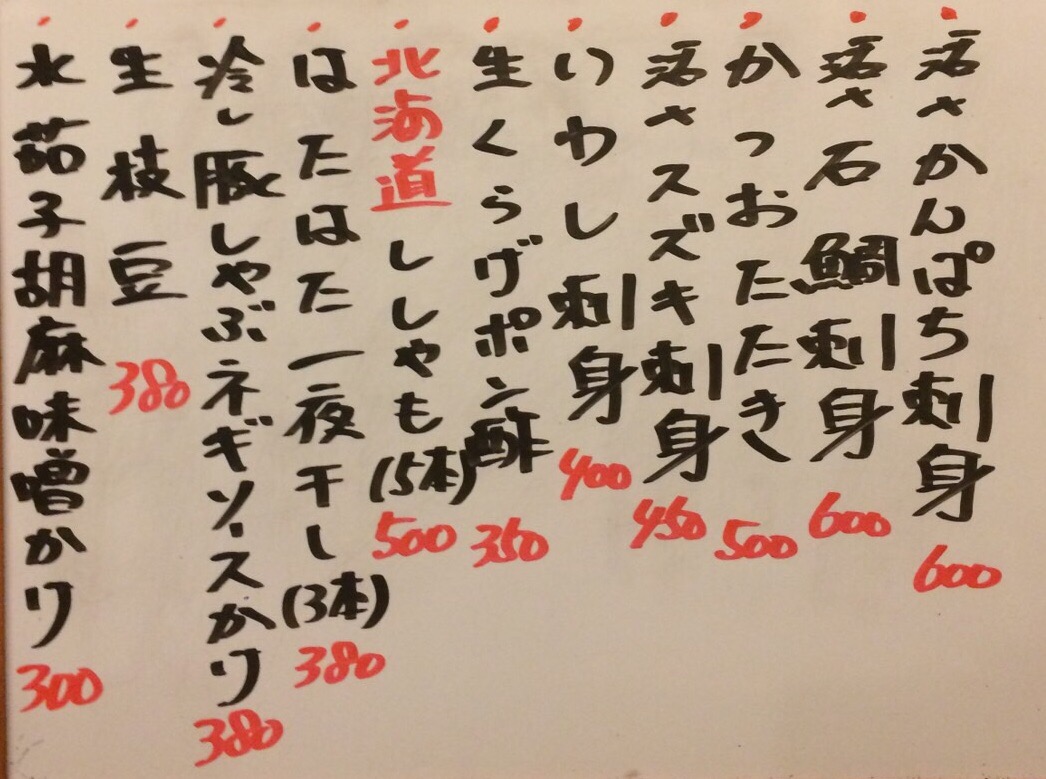 ・活〆かんぱち刺身 600
・活〆石鯛刺身 600
・かつおたたき 500
・活〆スズキ刺身 450
・いわし刺身 400
・生くらげポン酢 350
・北海道ししゃも(5本) 500
・はたはた一夜干し(3本) 380
・冷し豚しゃぶネギソースかけ 380
・生枝豆 380
・水茄子胡麻味噌かけ 300